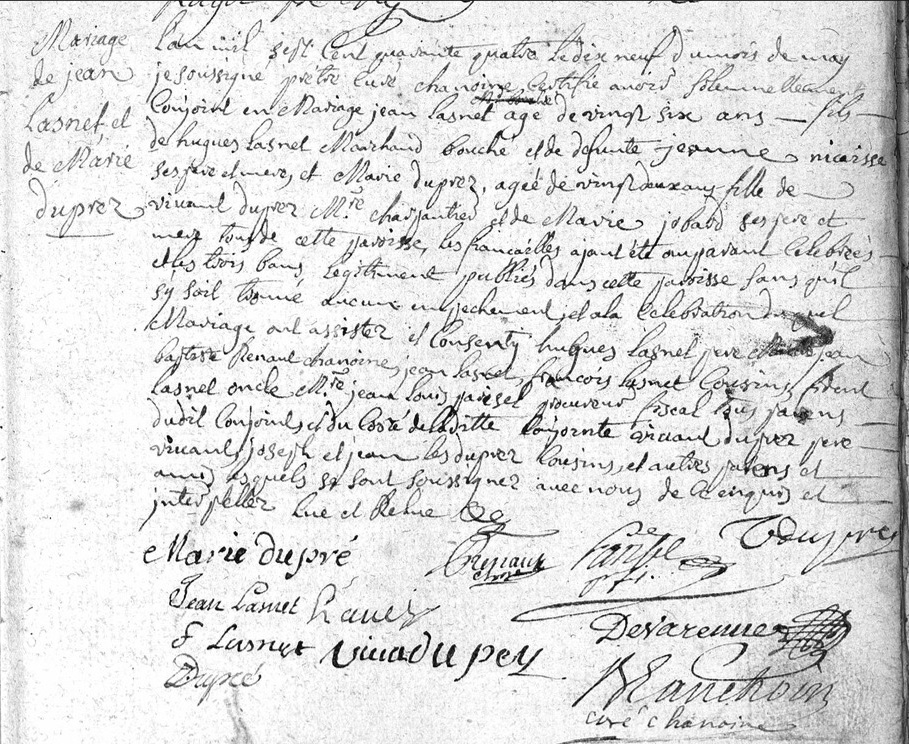 Mariage
de jean
Lasnet et
de Marie
duprez
Lan mil sept Cent quarante quatre Le dix neuf du mois de may
je soussigné prêtre Curé chanoine Certifie avoir solemnellement
Conjoint en Mariage jean Lasnet age de vingt six ans fils
de hugues Lasnet Marchand bouché et de defunte jeanne nicaisse
ses pere et mere, et Marie duprez, agée de vingt deux ans fille de
vivant duprez Mtre charpantier et de Marie jobard ses pere et
mere tous de cette paroisse, les fiancailles ajant été auparavant Celebreés
et les trois bans legitimement publiés dans cette paroisse sans qu'il
sy soit trouvé aucun empechement, et a la Celebration duquel
Mariage ont assister et Consenty hugues Lasnet pere jean
baptiste Renaut chanoine, jean Lasnet, francois Lasnet Cousins,
Lasnet oncle Mtre jean Louis parisel procureur fiscal tous parens
dudit Conjoint, et du Costé de laditte Conjointe vivant duprez pere
vivant, joseph et jean les duprez Cousins, et autres parens et
amis lesquels se sont soussignez avec nous de ce enquis et
interpellez Lue et Relue
Marie dupré
Renaut
V duprez
Jean Lasnet
F Lasnet
viva du pey
Devarenne
Dupré
curé chanoine